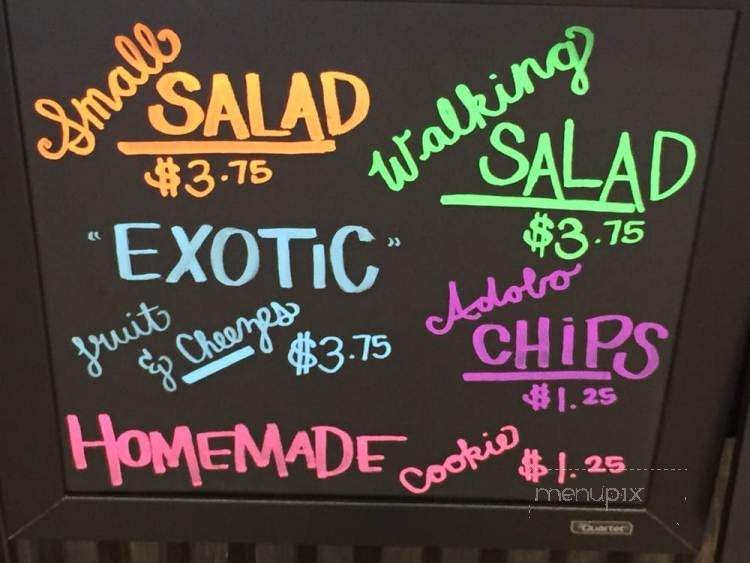 Small SALAD
$3.75
Walking SALAD
$3.75
"EXOTIC"
fruit & Cheezes $3.75
Adobo CHiPS
$1.25
HOMEMADE Cookie $1.25
menupix
Quartet